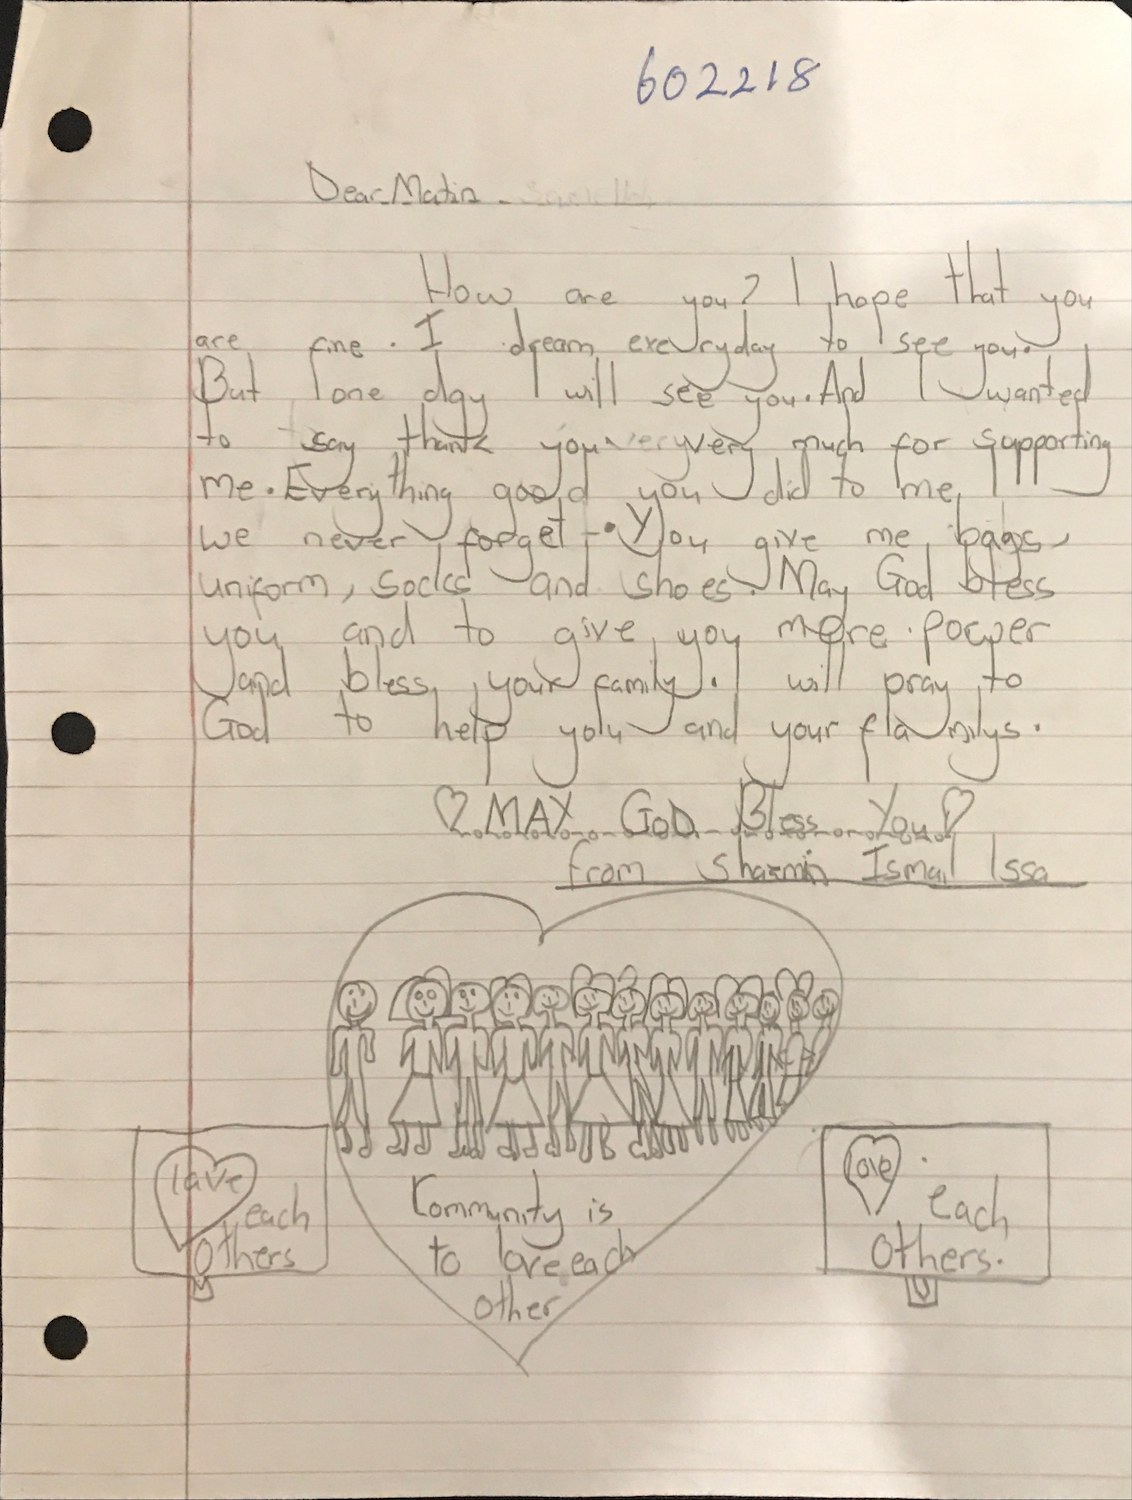 602218
Dear Matin
How are you? I hope that you
are fine. I dream everyday to see you.
But one day I will see you. And I wanted
to say thank you very very much for supporting
me. Everything good you did to me
we never forget. You give me bags,
uniform, socks and shoes. May God bless
you and to give you more power
and bless your family. I will pray to
God to help you and your flamilys.
♡ MAY GOD Bless You ♡
from Sharmin Ismail Issa
love each
others
Community is
to love each
other
love each
others.